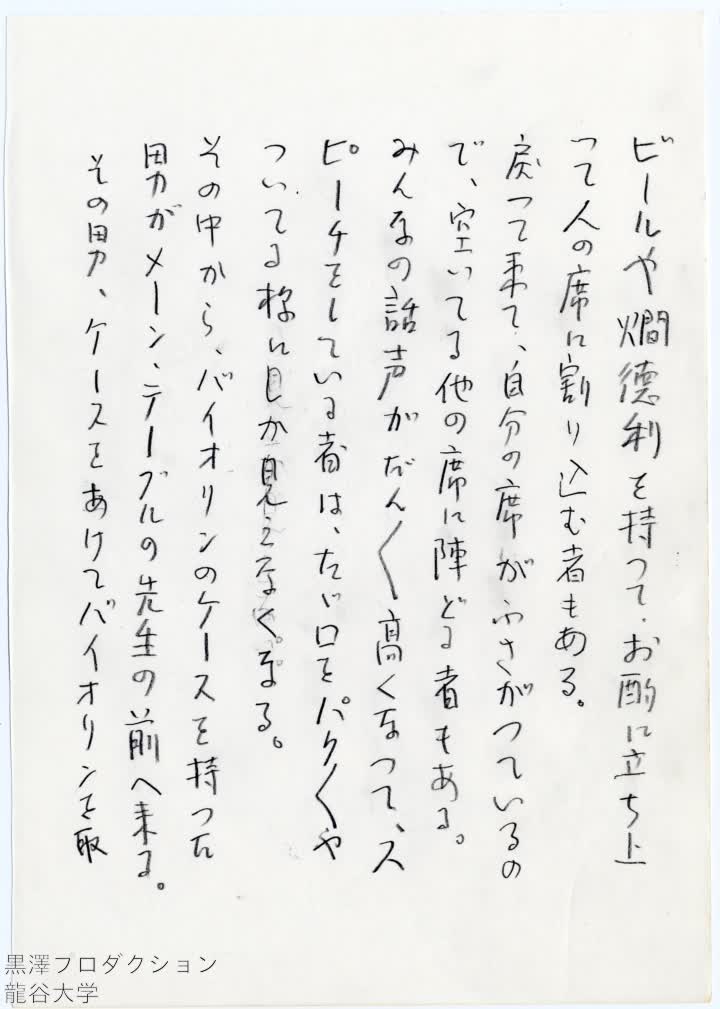 ビールや燗徳利を持って、お酌に立ち上
って人の席に割り込む者もある。
戻って来て、自分の席がふさがっているの
で、空いてる他の席に陣どる者もある。
みんなの話声がだん〱高くなって、ス
ピーチをしている者は、たゞ口をパク〱や
ついてる様にしか見えなくなる。
その中から、バイオリンのケースを持った
男がメーン・テーブルの先生の前へ来る。
その男、ケースをあけてバイオリンを取
黒澤プロダクション
龍谷大学